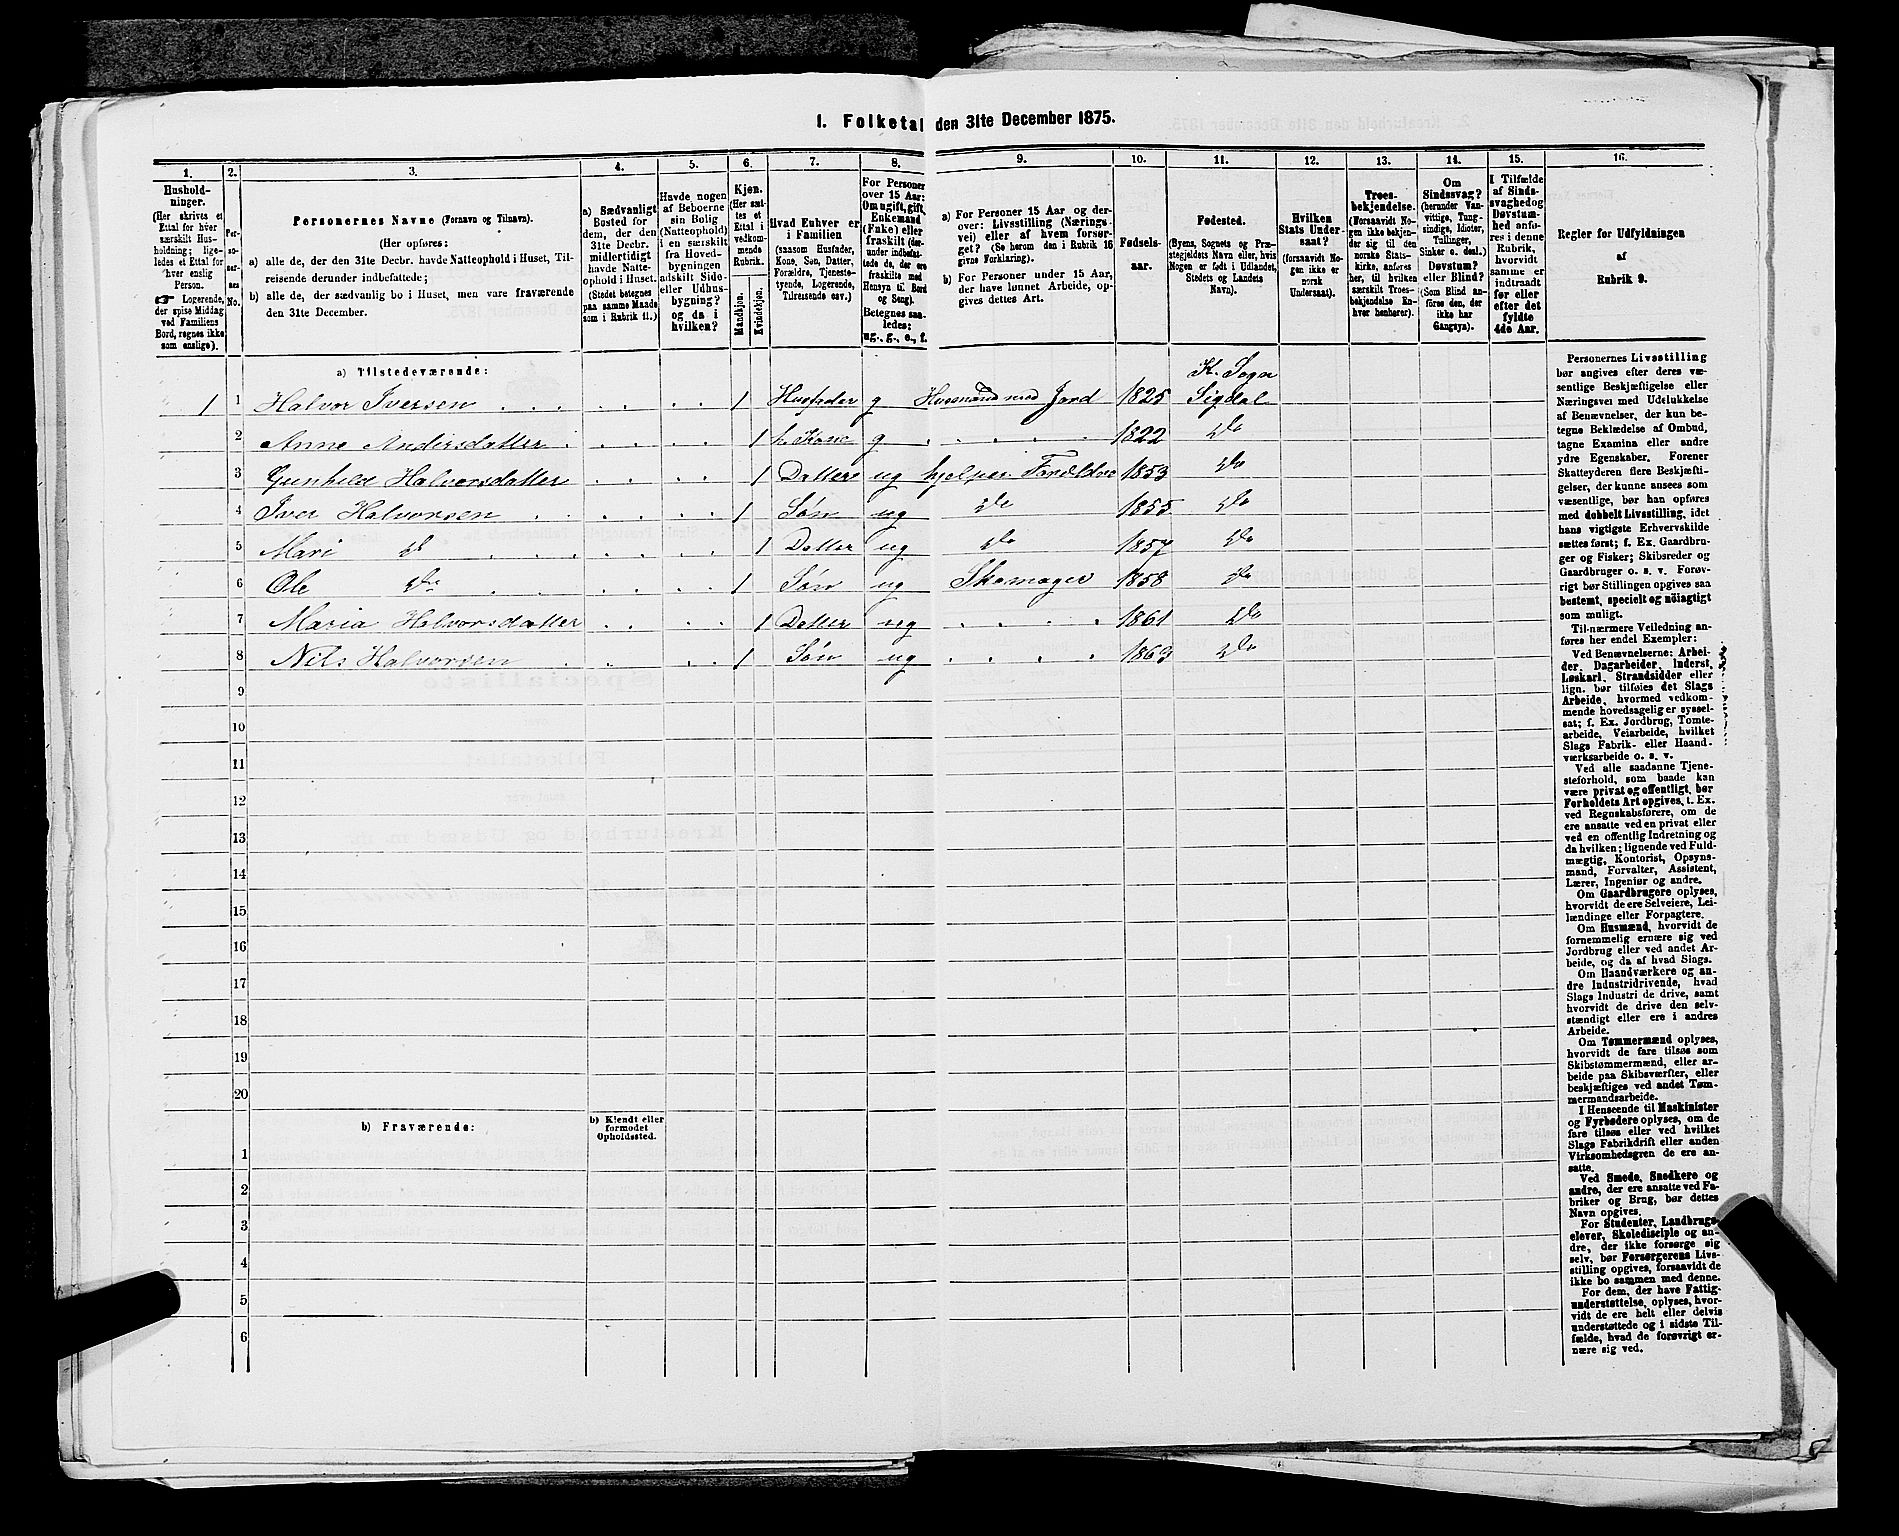 1. Folketal den 31te December 1875.
1. 2. 3. 4. 5. 6. 7. 8. 9. 10. 11. 12. 13. 14. 15. 16.
Hushold-
ninger.
(Her skrives et
Ettal for hver
særskilt Hus-
holdning; lige-
ledes et Ettal for
hver enslig
Person.
☛ Logerende,
der spise Middag
ved Familiens
Bord, regnes ikke
som enslige).
Per-
so-
ner-
nes
No.
Personernes Navne (Fornavn og Tilnavn).
(Her opføres:
a) alle de, der den 31te Decbr. havde Natteophold i Huset, Til-
reisende derunder indbefattede;
b) alle de, der sædvanlig bo i Huset, men vare fraværende
den 31te December.
a) Sædvanligt
Bosted for
dem, der den
31te Decbr.
midlertidigt
havde Natte-
ophold i Huset.
(Stedet betegnes
paa samme Maade
som i Rubrik 11.)
Havde nogen
af Beboerne
sin Bolig
(Natteophold)
i en særskilt
fra Hoved-
bygningen
adskilt Side-
eller Udhus-
bygning?
og da i
hvilken?
Kjøn.
(Her sæt-
tes et
Ettal i
vedkom-
mende
Rubrik.
Mandkjøn.
Kvindekjøn.
Hvad Enhver er
i Familien
(saasom Husfader,
Kone, Søn, Datter,
Forældre, Tjeneste-
tyende, Logerende,
Tilreisende osv.)
For Personer
over 15 Aar:
Om ugift, gift,
Enkemand
(Enke) eller
fraskilt (der-
under indbefat-
tede de, der ere
fraskilte med
Hensyn til Bord
og Seng).
Betegnes saa-
ledes:
ug., g., e., f.
a) For Personer 15 Aar og der-
over: Livsstilling (Nærings-
vei) eller af hvem forsør-
get? (Se herom den i Rubrik 16
givne Forklaring).
b) For Personer under 15 Aar,
der have lønnet Arbeide, op-
gives dettes Art.
Fødsels-
aar.
Fødested.
(Byens, Sognets og Præ-
stegjeldets Navn eller, hvis
Nogen er født i Udlandet,
Stedets og Landets
Navn).
Hvilken
Stats Under-
saat?
(forsaavidt No-
gen ikke er
norsk
Undersaat).
Troes-
bekjendelse.
(Forsaavidt No-
gen ikke bekjen-
der sig til den
norske Stats-
kirke, anføres
her, til hvilken
særskilt Troes-
bekjendelse En-
hver henhører).
Om
Sindssvag?
(herunder Van-
vittige, Tung-
sindige, Idioter,
Tullinger,
Sinker o. desl.)
Døvstum?
eller Blind?
(Som Blind an-
føres den, der
ikke har
Gangsyn).
I Tilfælde
af Sinds-
svaghed og
Døvstum-
hed anfø-
res i denne
Rubrik,
hvorvidt
samme er
indtraadt
før eller
efter det
fyldte
4de Aar.
Regler for Udfyldningen
af
Rubrik 9.
a) Tilstedeværende: K. Sogn
1 1 Halvor Iversen 1 Husfader g Husmand med Jord 1825 Sigdal
2 Anne Andersdatter 1 h. Kone g 1822 Do
3 Gunhild Halvorsdatter 1 Datter ug hjelper Forældre 1853 Do
4 Iver Halvorsen 1 Søn ug Do 1855 Do
5 Mari D 1 Datter ug Do 1857 Do
6 Ole Do 1 Søn ug Skomager 1858 Do
7 Maria Halvorsdatter 1 Datter ug 1861 Do
8 Nils Halvorsen 1 Søn ug 1863 Do
9
10
11
12
13
14
15
16
17
18
19
20
b) Fraværende: b) Kjendt eller
formodet
Opholdssted.
1
2
3
4
5
6
Personernes Livsstilling
bør angives efter deres væ-
sentlige Beskjæftigelse eller
Næringsvei med Udelukkelse
af Benævnelser, der kun be-
tegne Beklædelse af Ombud,
tagne Examina eller andre
ydre Egenskaber. Forener
Skatteyderen flere Beskjæfti-
gelser, der kunne ansees som
væsentlige, bør han opføres
med dobbelt Livsstilling, idet
hans vigtigste Erhvervskilde
sættes først; f. Ex. Gaardbru-
ger og Fisker; Skibsreder og
Gaardbruger o. s. v. Forøv-
rigt bør Stillingen opgives saa
bestemt, specielt og nøiagtigt
som muligt.
Til nærmere Veiledning an-
føres her endel Exempler:
Ved Benævnelserne: Arbei-
der, Dagarbeider, Inderst,
Løskarl, Strandsidder eller
lign. bør tilføies det Slags
Arbeide, hvormed vedkom-
mende hovedsagelig er syssel-
sat; f. Ex. Jordbrug, Tomte-
arbeide, Veiarbeide, hvilket
Slags Fabrik- eller Haand-
værksarbeide o. s. v.
Ved alle saadanne Tjene-
steforhold, som baade kan
være privat og offentligt, bør
Forholdets Art opgives, f. Ex.
ved Regnskabsførere, om de
ere ansatte ved en privat eller
ved en offentlig Indretning og
da hvilken; lignende ved Fuld-
mægtig, Kontorist, Opsyns-
mand, Forvalter, Assistent,
Lærer, Ingeniør og andre.
Om Gaardbrugere oplyses,
hvorvidt de ere Selveiere, Lei-
lændinge eller Forpagtere.
Om Husmænd, hvorvidt de
fornemmelig ernære sig ved
Jordbrug eller ved andet Ar-
beide, og da af hvad Slags.
Om Haandværkere og an-
dre Industridrivende, hvad
Slags Industri de drive, samt
hvorvidt de drive den selv-
stændigt eller ere i andres
Arbeide.
Om Tømmermænd oplyses,
hvorvidt de fare tilsøs som
Skibstømmermænd, eller ar-
beide paa Skibsværfter, eller
beskjæftiges ved andet Tøm-
mermandsarbeide.
I Henseende til Maskinister
og Fyrbødere oplyses, om de
fare tilsøs eller ved hvilket
Slags Fabrikdrift eller anden
Virksomhedsgren de ere an-
satte.
Ved Smede, Snedkere og
andre, der ere ansatte ved Fa-
briker og Brug, bør dettes
Navn opgives.
For Studenter, Landbrugs-
elever, Skoledisciple og an-
dre, der ikke forsørge sig
selv, bør Forsørgerens Livs-
stilling opgives, forsaavidt de
ikke bo sammen med denne.
For dem, der have Fattig-
understøttelse, oplyses, hvor-
vidt de ere helt eller delvis
understøttede og i sidste Til-
fælde, hvad de forøvrigt er-
nære sig ved.